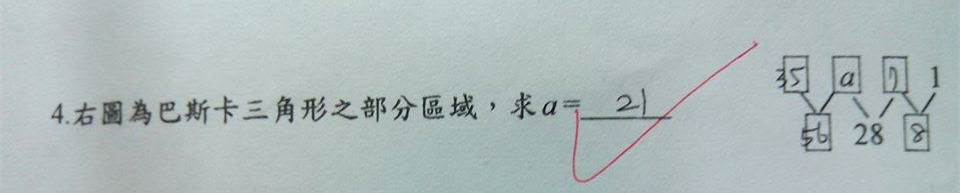 35 a 7 1
4.右圖為巴斯卡三角形之部分區域，求a=21
56 28 8